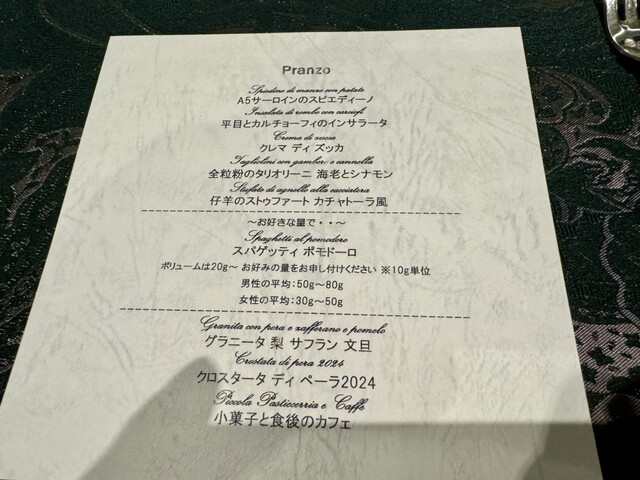 Pranzo
Spiedino di manzo con patate
A5サーロインのスピエディーノ
Insalata di rombo con carciofi
平目とカルチョーフィのインサラータ
Crema di zucca
クレマ ディ ズッカ
Tagliolini con gambero e cannella
全粒粉のタリオリーニ 海老とシナモン
Stufato di agnello alla cacciatora
仔羊のストゥファート カチャトーラ風
～お好きな量で・・～
Spaghetti al pomodoro
スパゲッティ ポモドーロ
ボリュームは20g～ お好みの量をお申し付けください ※10g単位
男性の平均:50g～80g
女性の平均:30g～50g
Granita con pera e zafferano e pomelo
グラニータ 梨 サフラン 文旦
Crostata di pera 2024
クロスタータ ディ ペーラ2024
Piccola Pasticcerria e Caffe
小菓子と食後のカフェ